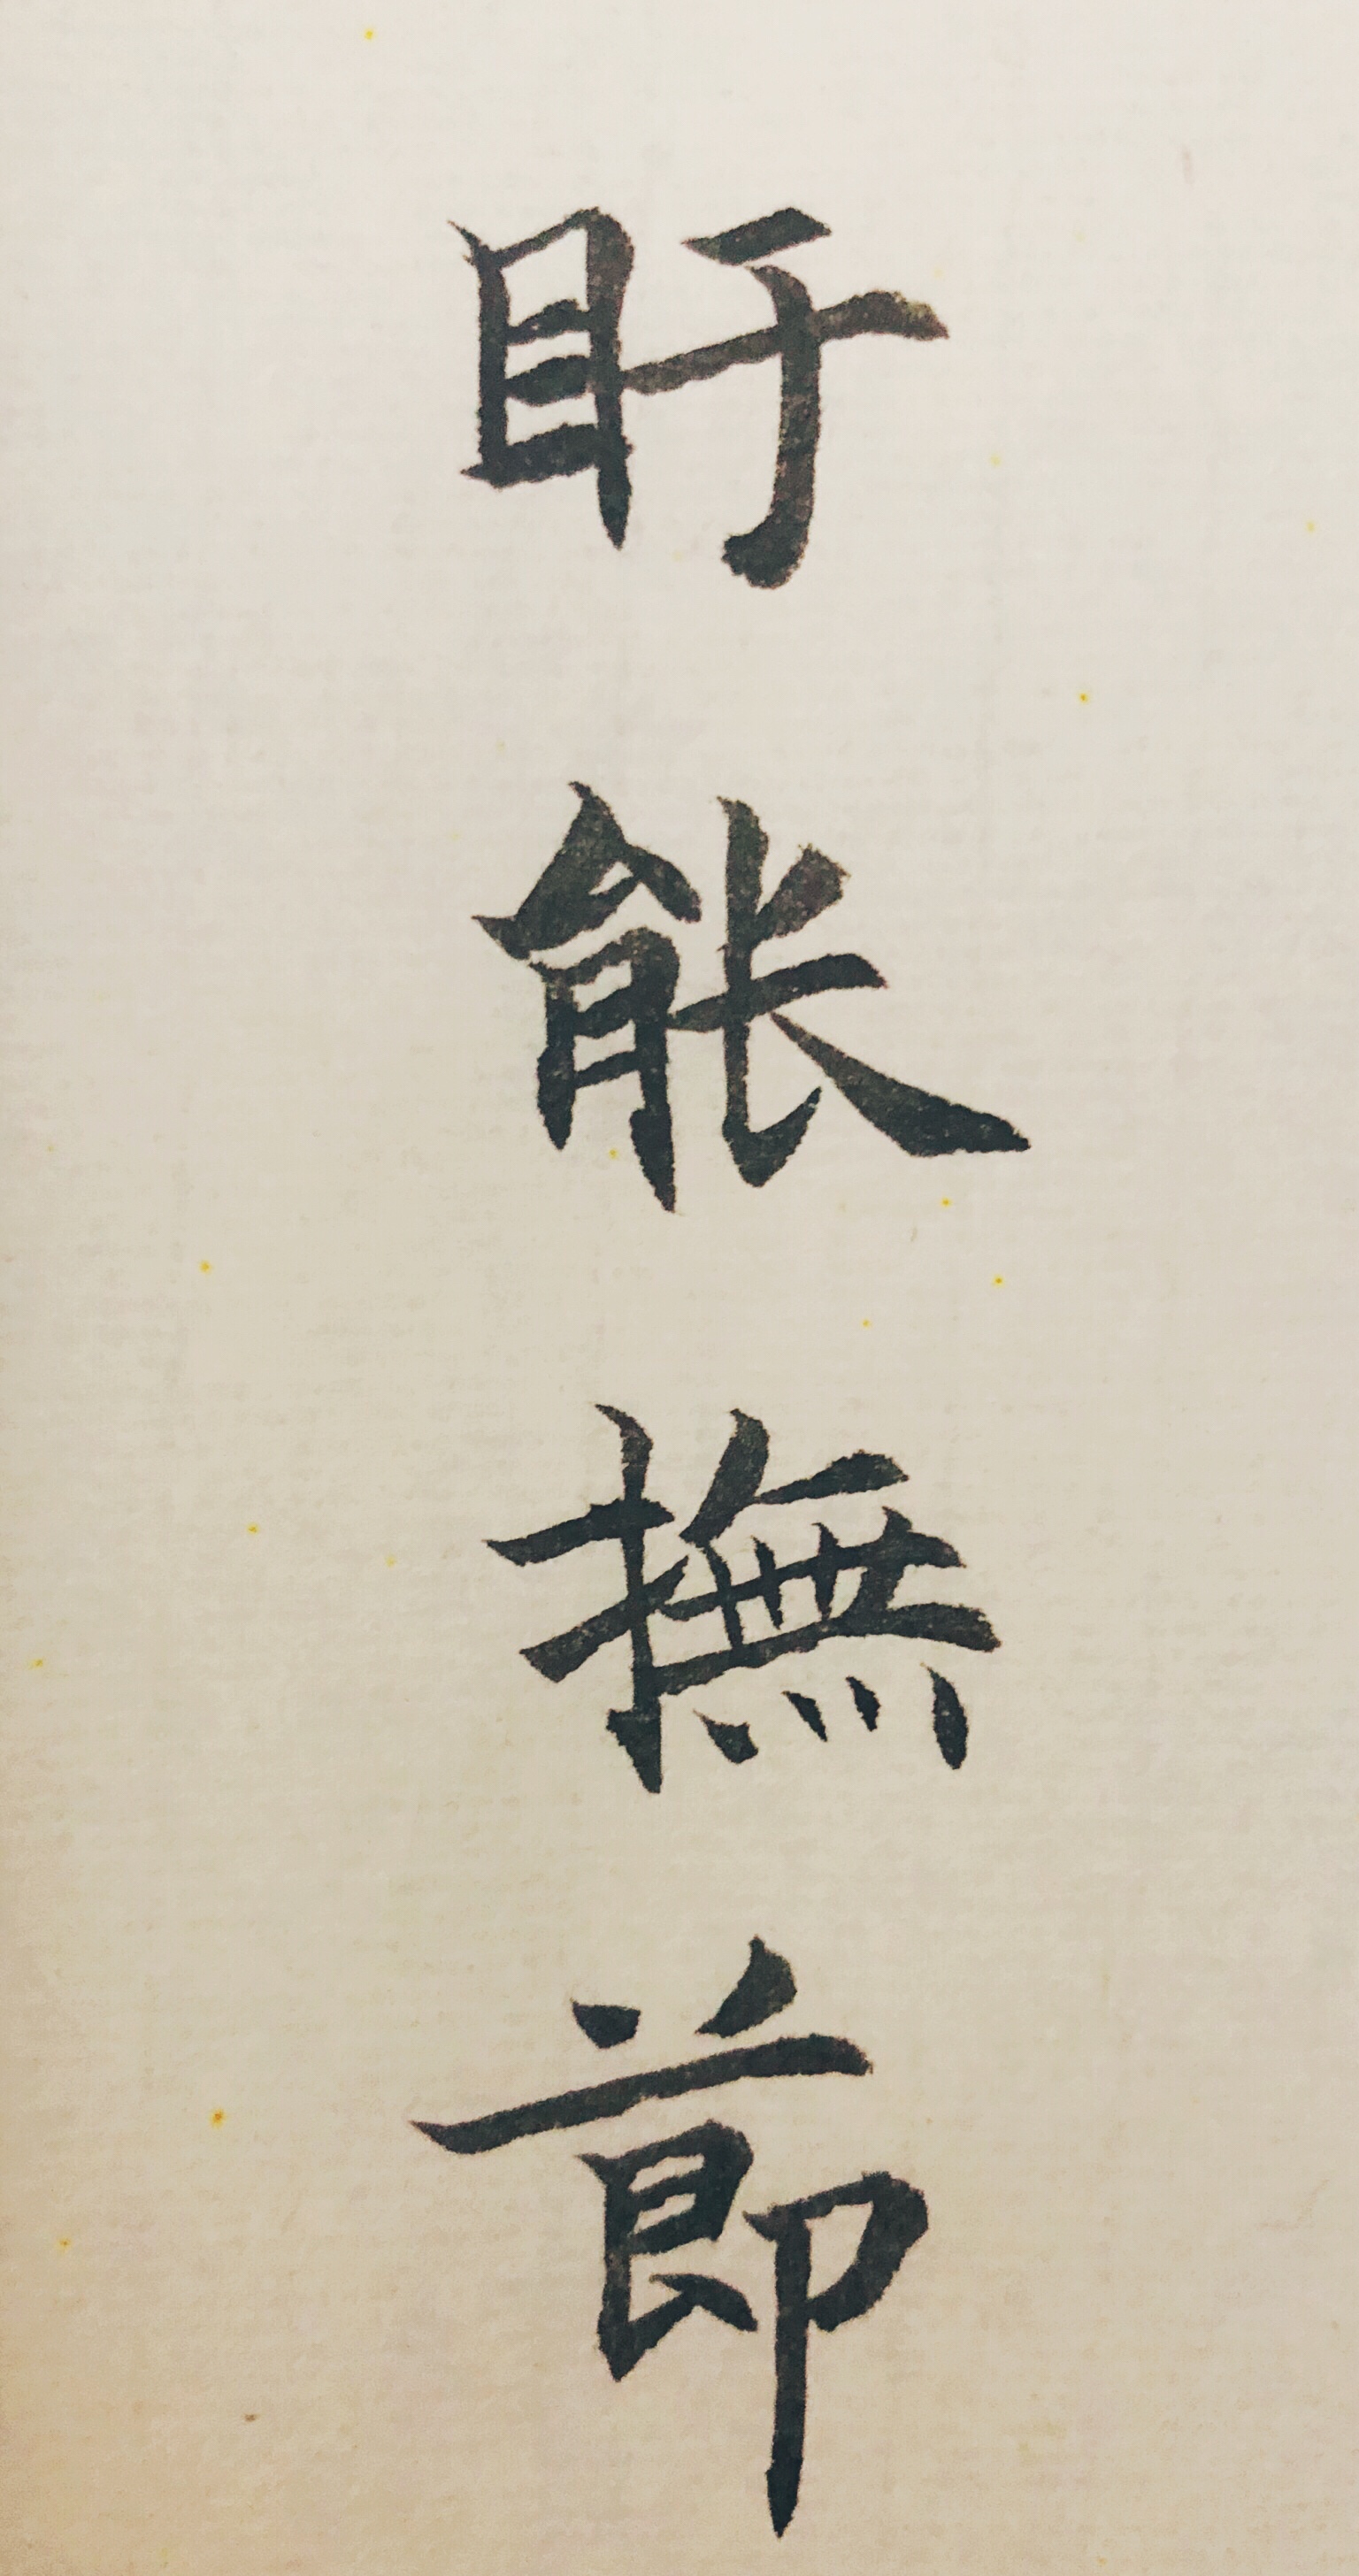 盱能撫節